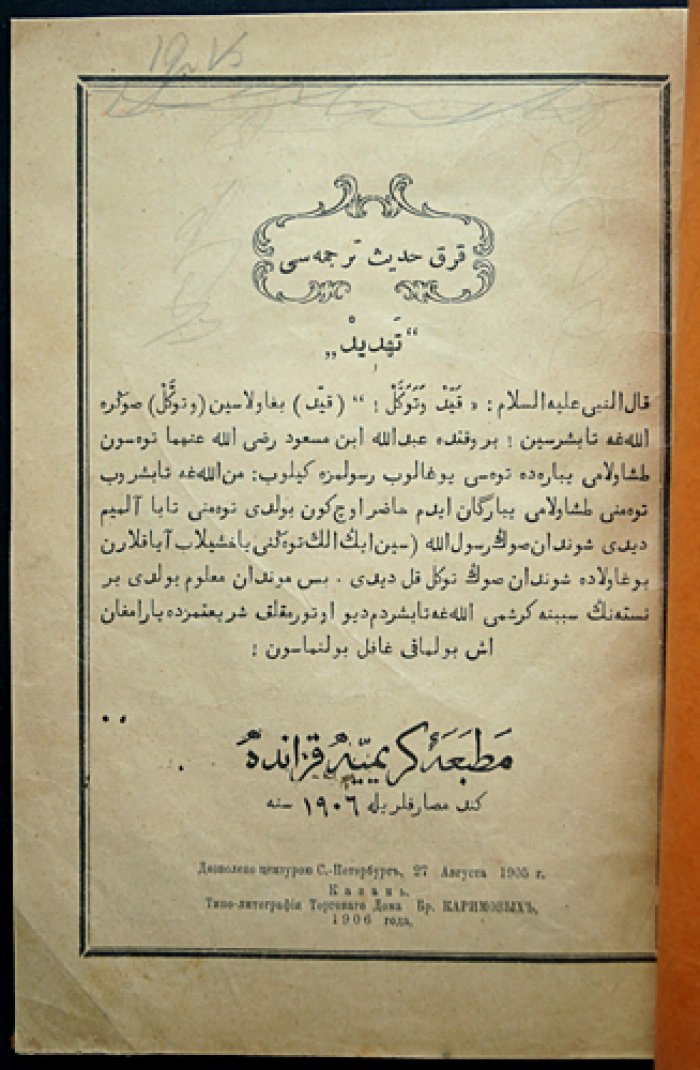 قرق حديث ترجمه‌سى
“تهديد„
قال النبى عليه السلام: « قَيِّدْ وَتَوَكَّلْ ؛ “ (قيّد) بغاولاسين (وتوكّلْ) صوڭره
الله‌غه تابشرسين ؛ بر وقتده عبدالله ابن مسعود رضى الله عنهما توه‌سون
طشاولامى يباره‌ده توه‌سى يوغالوب رسولمزه كيلوب: من الله‌غه تابشروب
توه‌منى طشاولامى يبارگان ايدم حاضر اوچ كون بولدى توه‌منى تابا آلميم
ديدى شوندان صوڭ رسول الله (سين ابڭ الك توه‌ڭنى ياخشيلاب آياقلارن
بوغاولاده شوندان صوڭ توكل قل ديدى . بس موندان معلوم بولدى بر
نسته‌نڭ سببنه كرشمى الله‌غه تابشردم ديو اوتورمقلق شريعتمزده يارامغان
اش بولماقى غافل بولنماسون ؛
مَطبَعَهٔ كريميّه قزانده
كند مصارفلريله ١٩٠٦ سنه
Дозволено цензурою С.-Петербургъ, 27 Августа 1905 г.
Казань.
Типо-литографія Торговаго Дома Бр. КАРИМОВЫХЪ,
1906 года.